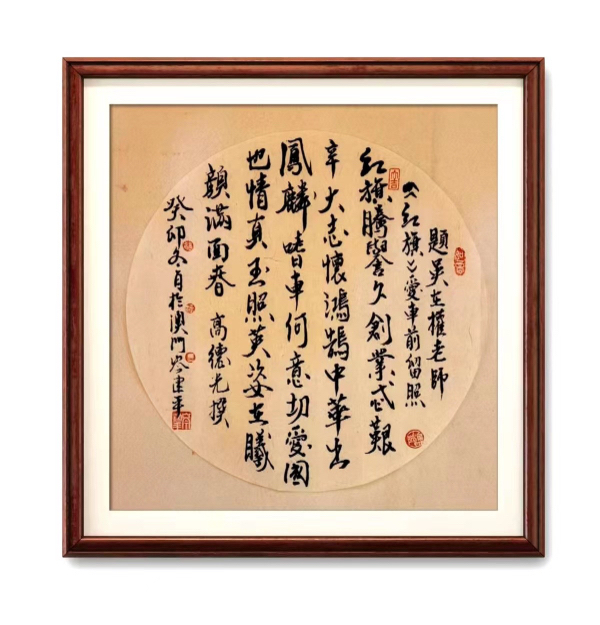 題吳在權老師
《紅旗》愛車前留照
紅旗騰譽久創業忒艱
辛大志懷鴻鵠中華出
鳳麟嗜車何意切愛國
也情真玉照英姿在曦
顏滿面春 高德光撰
癸卯冬於澳門